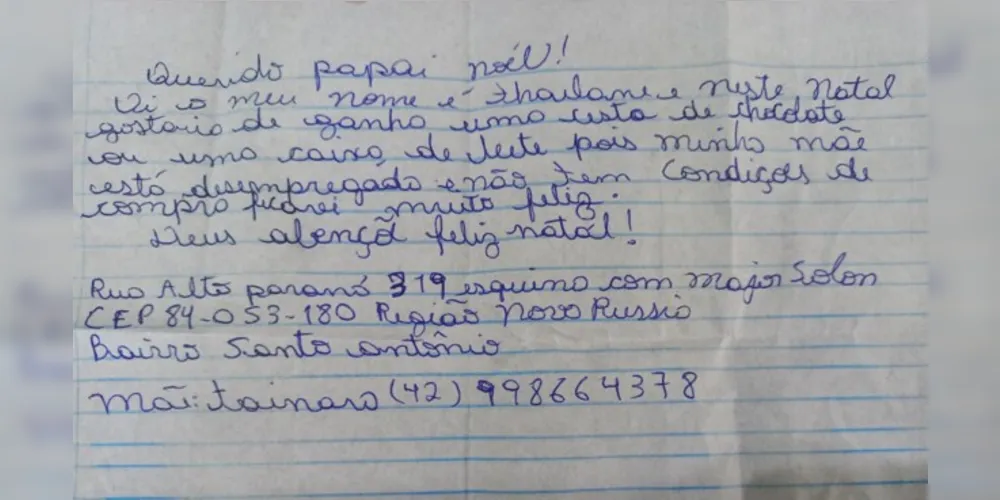 Querido papai nóel!
Oi o meu nome é thailane e neste natal
gostaria de ganha uma cesta de chocolate
ou uma caixa de leite pois minha mãe
está desempregada e não tem condições de
compra ficarei muito feliz.
Deus abençõe feliz natal!
Rua Alto paraná 319 esquina com major Solon
CEP 84-053-180 Região Nova Russia
Bairro Santo antônio
Mãe: tainara (42) 998664378